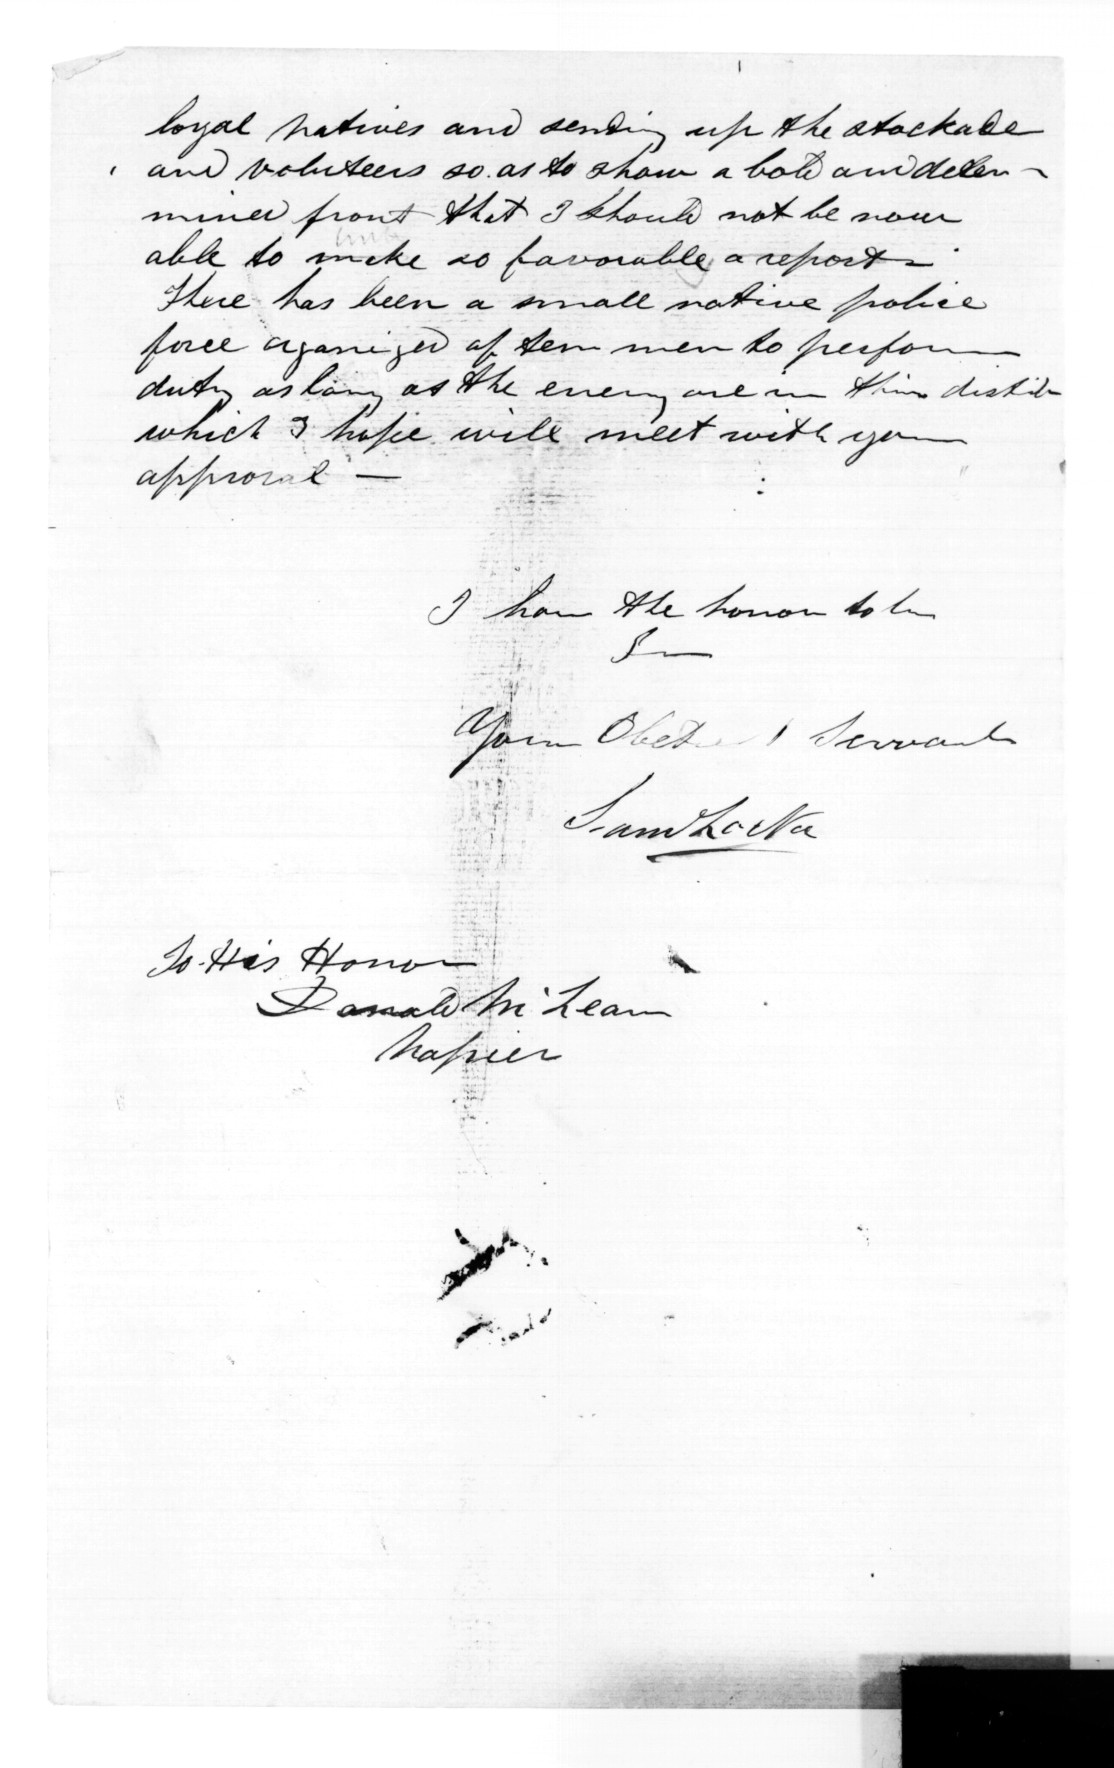 loyal natives and sending up the stockade
and voluteers so as to show a bold and deter-
mined front that I should not be now
able to make so favorable a report -
There has been a small native police
force organized of ten men to perform
duty as long as the enemy are in this district
which I hope will meet with your
approval —
I have the honor to be
Sir
Your Obedient Servant
Saml Locke
To His Honor
Donald McLean
Napier